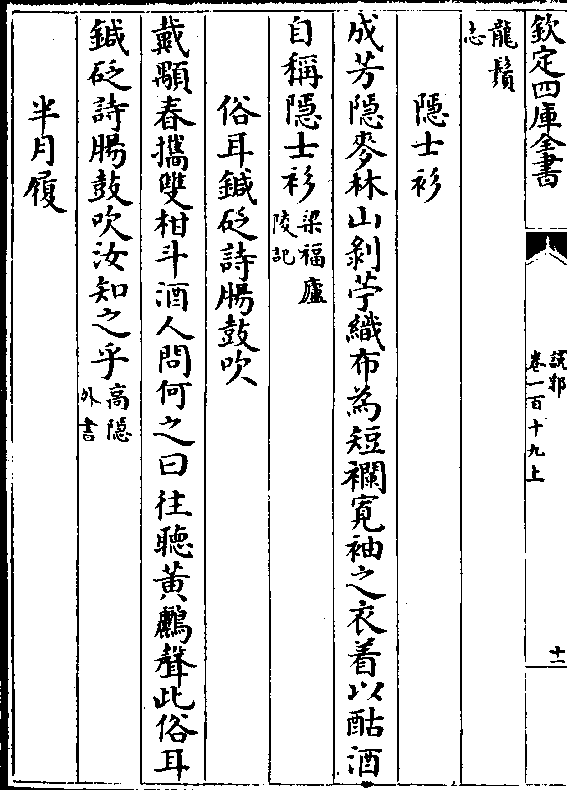 欽定四庫全書
說郛
卷一百十九上
十一
龍鬚
志
隱士衫
成芳隱麥林山剝苧織布為短襴寬袖之衣着以酤酒
自稱隱士衫梁福廬
陵記
俗耳鍼砭詩腸鼓吹
戴顒春攜雙柑斗酒人問何之曰往聽黃鸝聲此俗耳
鍼砭詩腸鼓吹汝知之乎高隱
外書
半月履